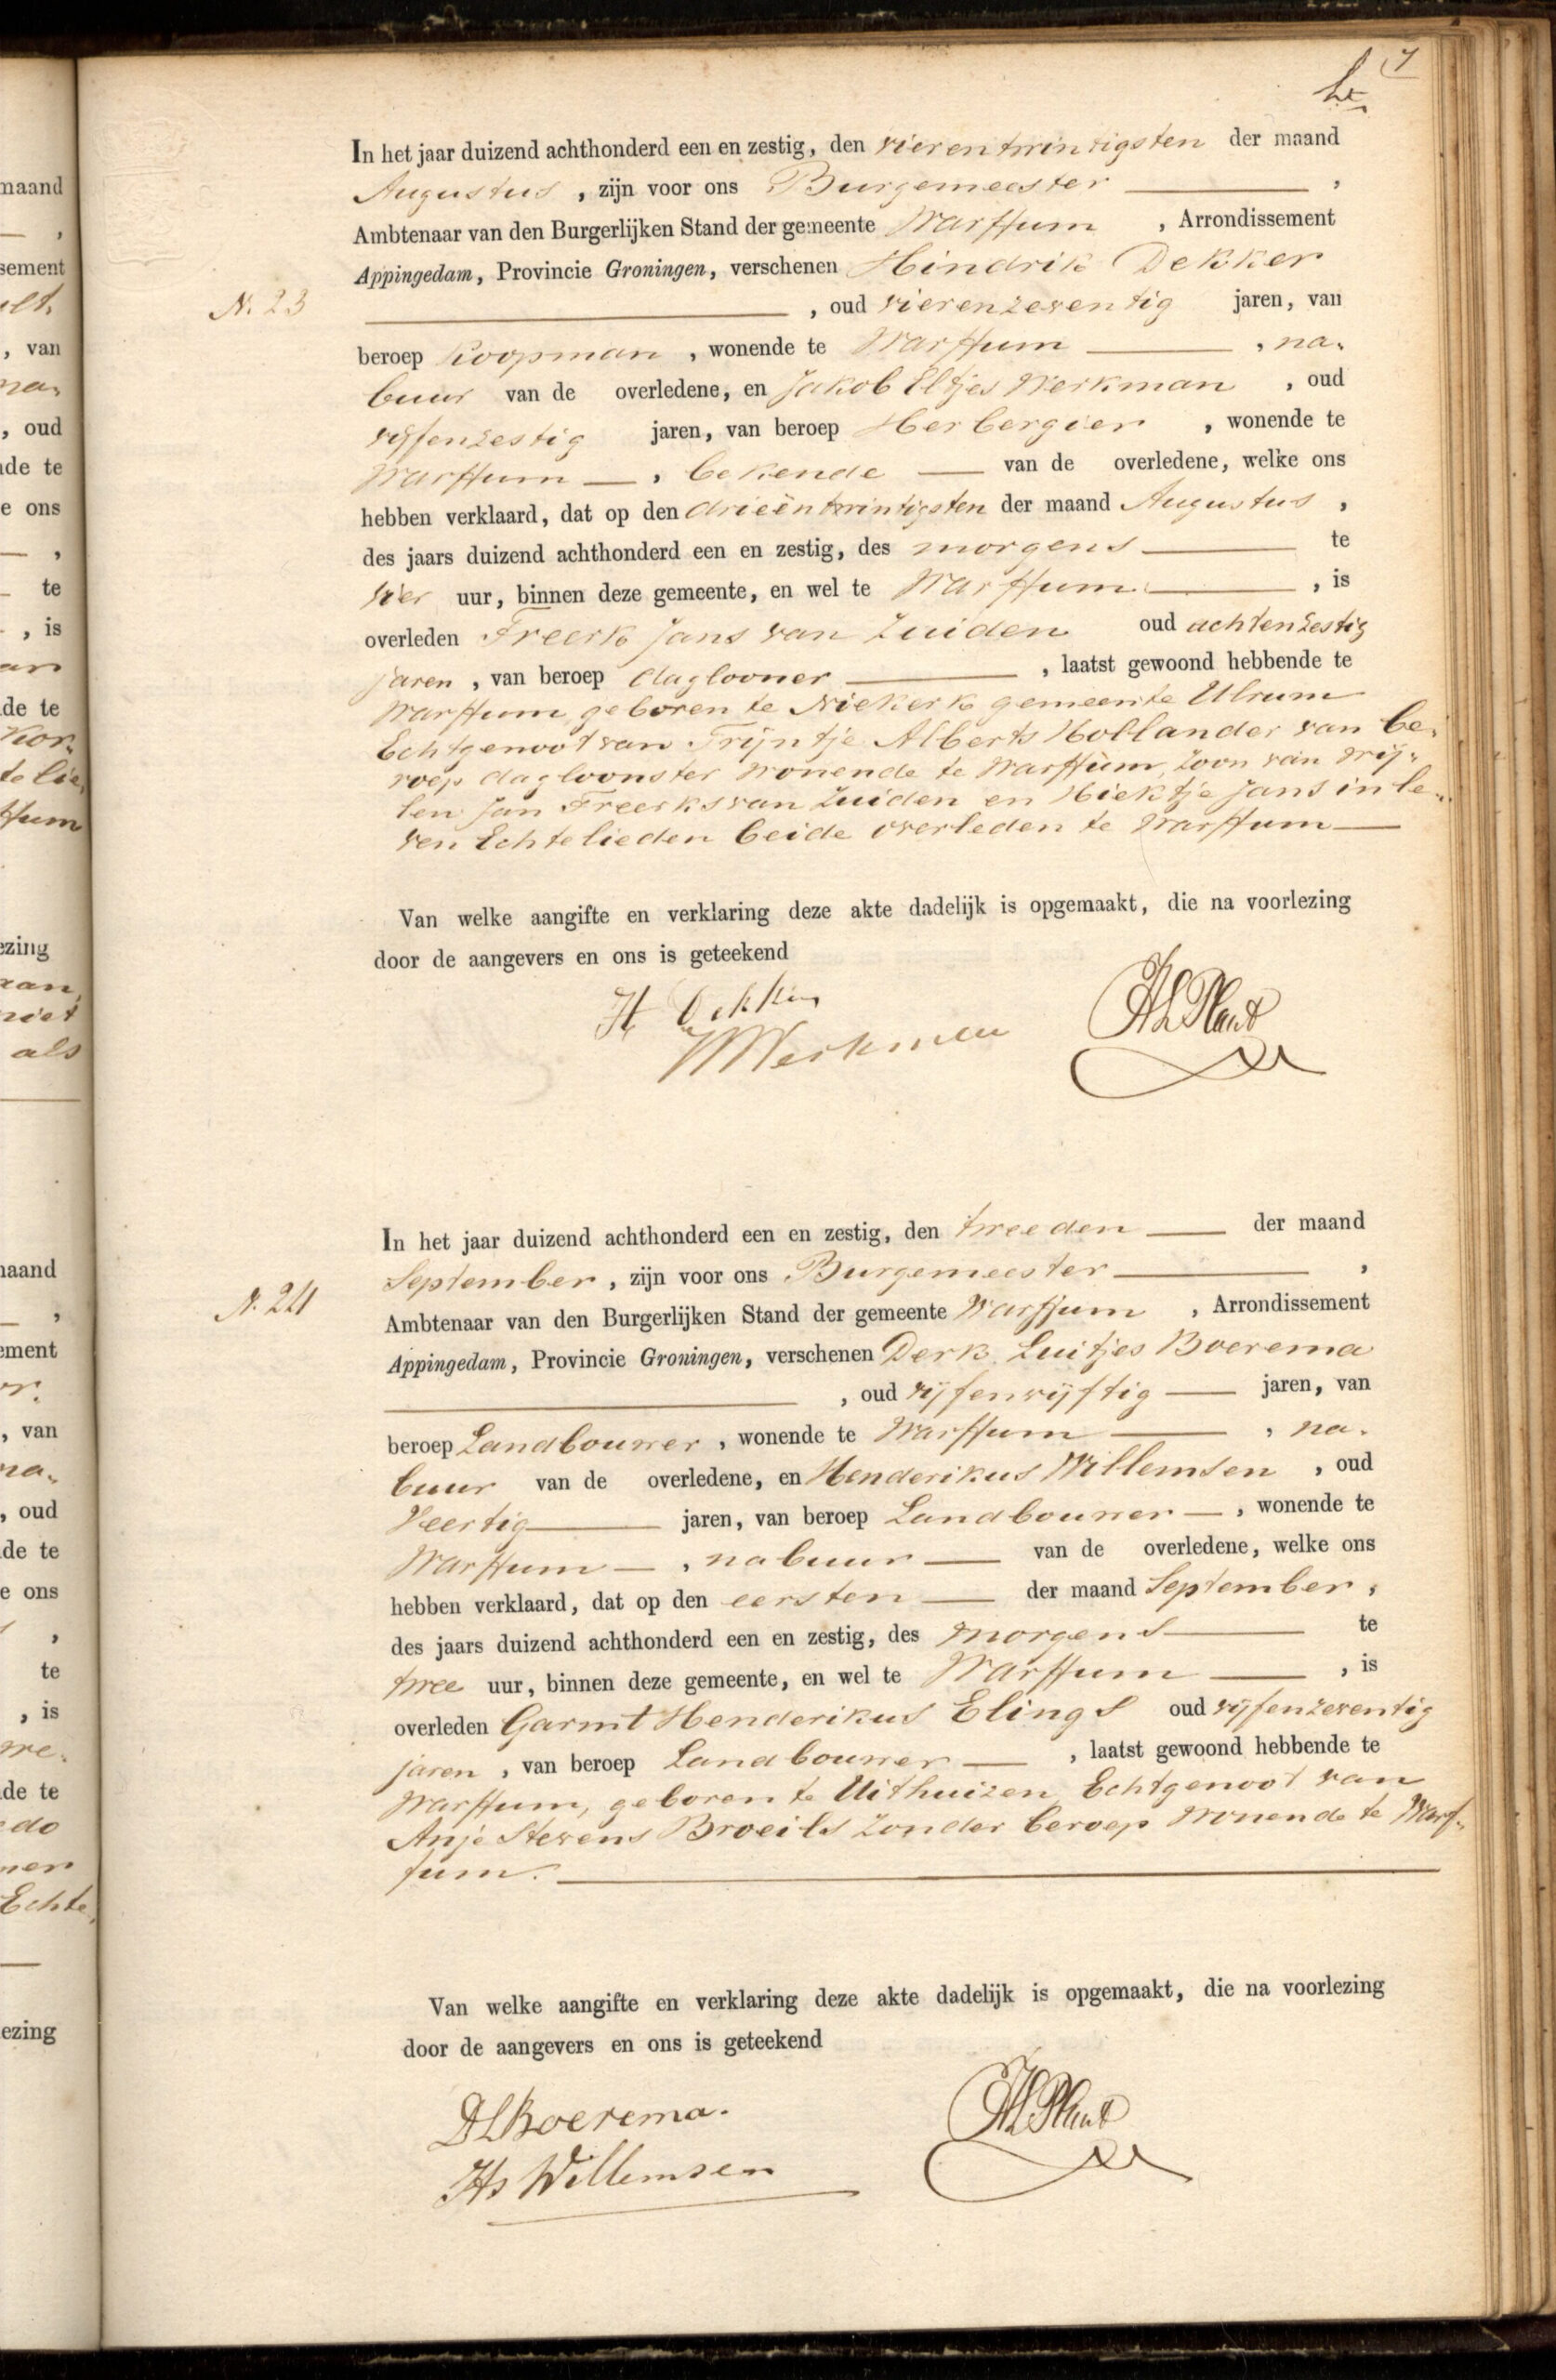 7
In het jaar duizend achthonderd een en zestig, den vierentwintigsten der maand
Augustus, zijn voor ons Burgemeester,
Ambtenaar van den Burgerlijken Stand der gemeente Warffum, Arrondissement
Appingedam, Provincie Groningen, verschenen Hindrik Dekker
N. 23
, oud vierenzeventig jaren, van
beroep Koopman, wonende te Warffum, na-
buur van de overledene, en Jakob Eltjes Werkman, oud
vijfenzestig jaren, van beroep Herbergier, wonende te
Warffum, bekende van de overledene, welke ons
hebben verklaard, dat op den drieëntwintigsten der maand Augustus,
des jaars duizend achthonderd een en zestig, des morgens te
vier uur, binnen deze gemeente, en wel te Warffum, is
overleden Freerk Jans van Zuiden oud achtenzestig
jaren, van beroep daglooner, laatst gewoond hebbende te
Warffum, geboren te Niekerk gemeente Ulrum
Echtgenoot van Trijntje Alberts Hollander van be-
roep dagloonster wonende te Warffum, Zoon van wij-
len Jan Freerks van Zuiden en Hiektje Jans in le-
ven Echtelieden beide overleden te Warffum
Van welke aangifte en verklaring deze akte dadelijk is opgemaakt, die na voorlezing
door de aangevers en ons is geteekend
H Dekker
Werkman
In het jaar duizend achthonderd een en zestig, den tweeden der maand
September, zijn voor ons Burgemeester,
N. 24
Ambtenaar van den Burgerlijken Stand der gemeente Warffum, Arrondissement
Appingedam, Provincie Groningen, verschenen Derk Luitjes Boerema
, oud vijfenvijftig jaren, van
beroep Landbouwer, wonende te Warffum, na-
buur van de overledene, en Henderikus Willemsen, oud
Veertig jaren, van beroep Landbouwer, wonende te
Warffum, nabuur van de overledene, welke ons
hebben verklaard, dat op den eersten der maand September,
des jaars duizend achthonderd een en zestig, des morgens te
twee uur, binnen deze gemeente, en wel te Warffum, is
overleden Garmt Henderikus Elings oud vijfenzeventig
jaren, van beroep Landbouwer, laatst gewoond hebbende te
Warffum, geboren te Uithuizen, Echtgenoot van
Anje Stevens Broeils Zonder beroep wonende te Warf-
fum.
Van welke aangifte en verklaring deze akte dadelijk is opgemaakt, die na voorlezing
door de aangevers en ons is geteekend
DLBoerema.
Hs Willemsen